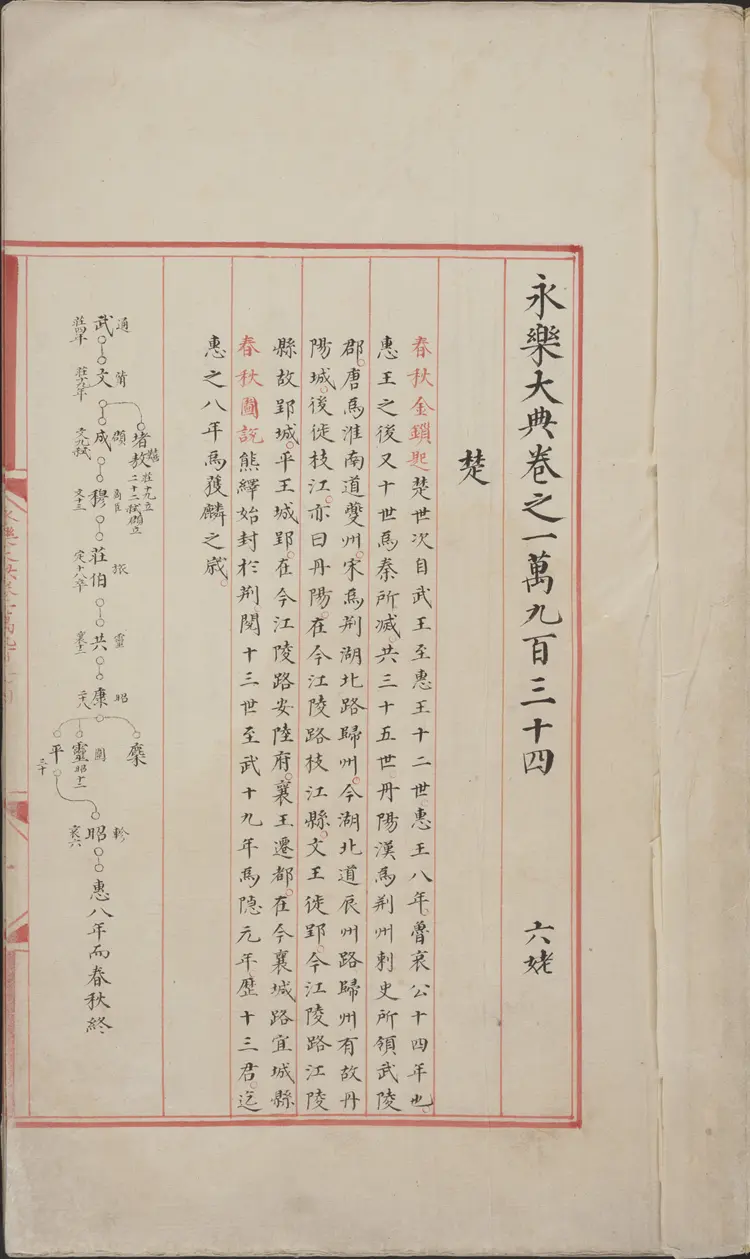 永樂大典卷之一萬九百三十四 六姥
楚
春秋金鎖匙楚世次自武王至惠王十二世惠王八年魯哀公十四年也
惠王之後又十世爲秦所滅共三十五世丹陽漢爲荆州刺史所領武陵
郡唐爲淮南道夔州宋爲荆湖北路歸州今湖北道辰州路歸州有故丹
陽城後徙枝江亦曰丹陽在今江陵路枝江縣文王徙郢今江陵路江陵
縣故郢城平王城郢在今江陵路安陸府襄王遷都在今襄城路宜城縣
春秋圖説熊繹始封於荆閱十三世至武十九年爲隱元年歷十三君迄
惠之八年爲獲麟之歲
通
武
莊四年
文
莊十九年
堵敖
莊十九立
二十二弑頵立
頵
成
文元弑
商臣
穆
文十三
旅
莊伯
宣十八卒
共
襄十三
昭
康
二十八
麇
圍
靈
昭十三
平
二十
軫
昭
哀六
惠八年而春秋終